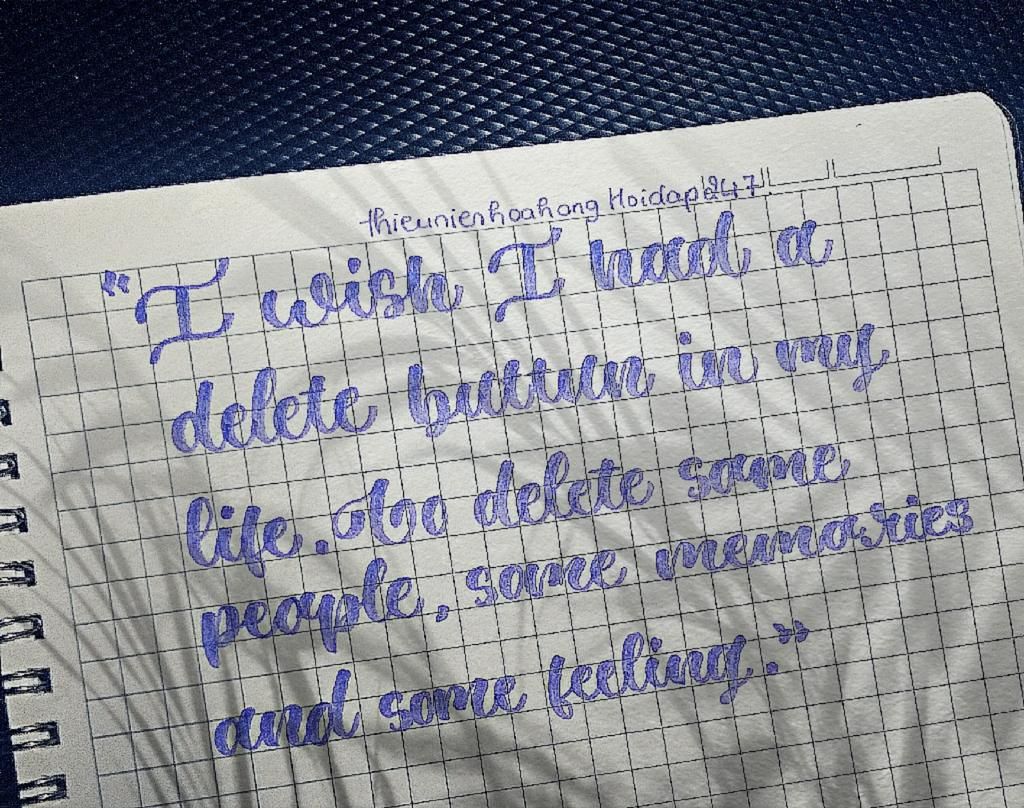 thieunienhoahong Hoidap247
"I wish I had a
delete buttun in my
life. To delete some
people, some memories
and some feeling."